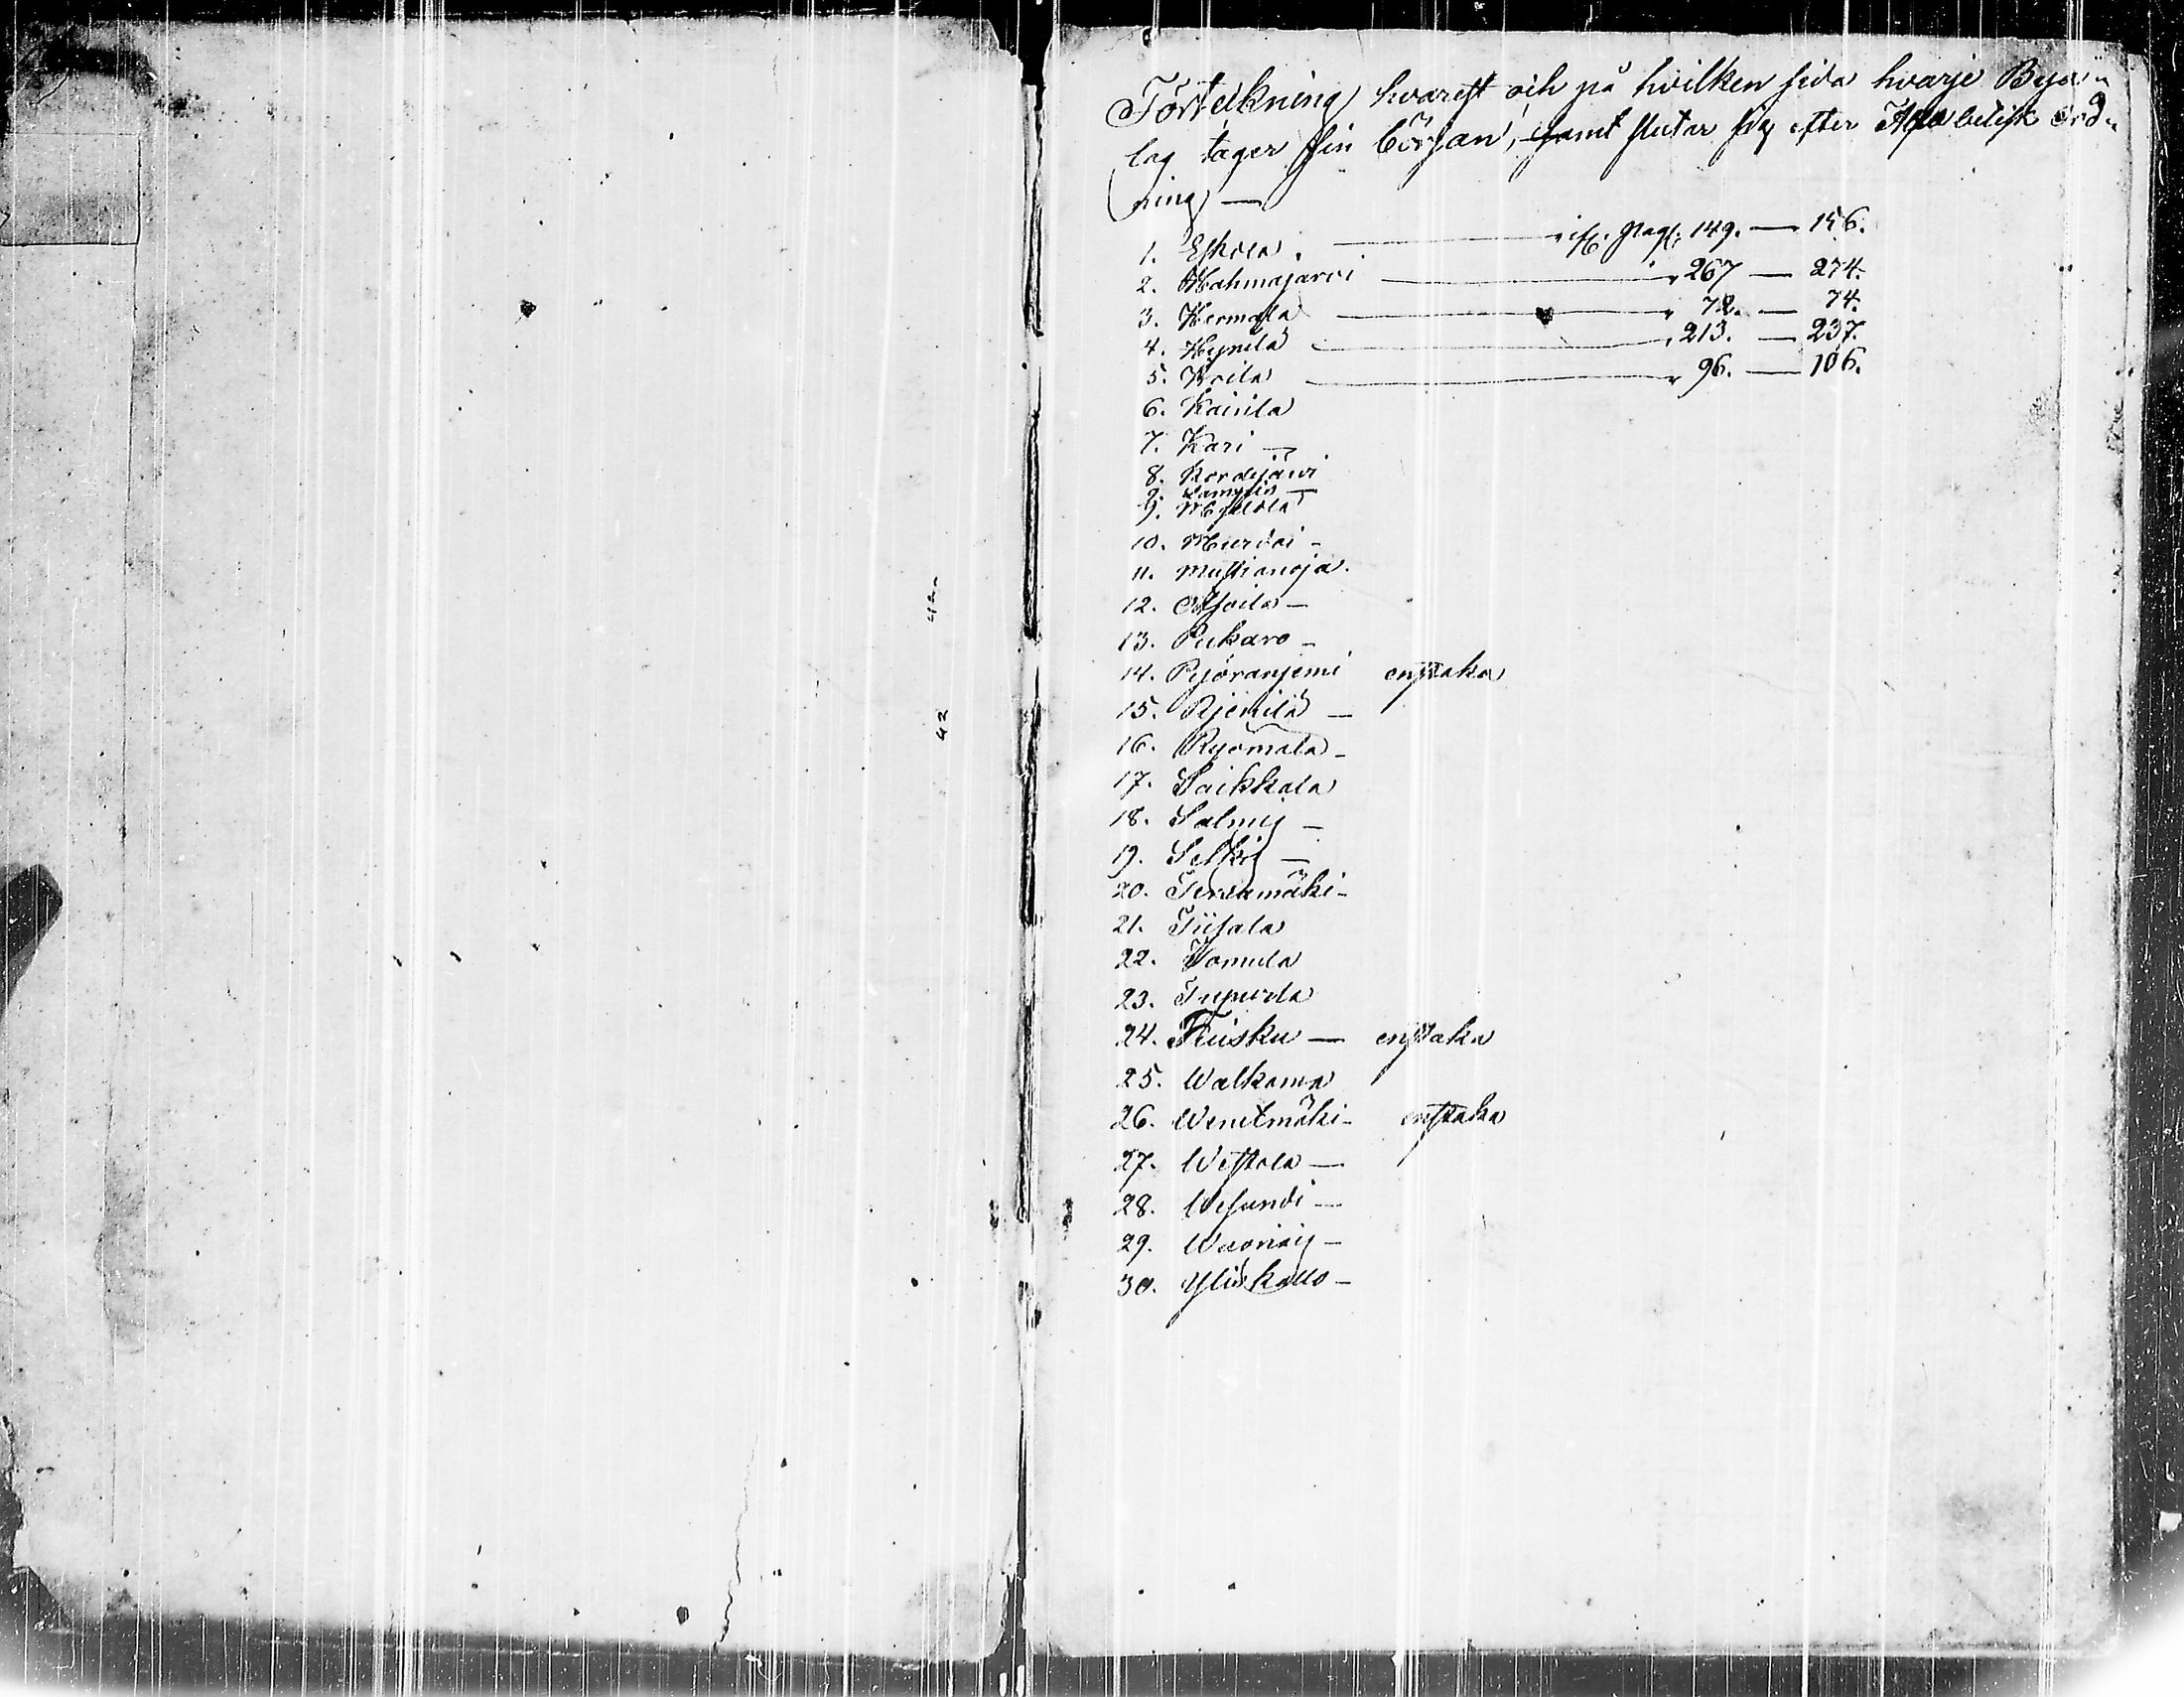 Förtekning hvarest och på hvilken sida hvarje Bya=
lag tager sin början, samt slutar sig efter Alfabetisk Ord=
ning —
1. Eskola — pag. 149. — 156.
2. Hahmajärvi — " 267 — 274.
3. Hermala — " 72. — 74.
4. Hyrsilä — " 213. — 237.
5. Koila — " 96. — 106.
6. Kainila
7. Kari —
8. Kordejärvi
9. —
9. Myllola
10. Murdoi -
11. Mustianoja.
12. —
13. Pukaro -
14. Pyöranjemi enstaka
15. Rjenilä —
16. Ryömälä -
17. Saikkala
18. Salmij —
19. Selkij —
20. Tervamäki -
21. Tiisala
22. Tomula
23. Tupurla
24. Truisku — enstaka
25. Walkama
26. Wenetmäki - enstaka
27. Westola —
28. Wesundi —
29. —
30. Yliskallo —
42